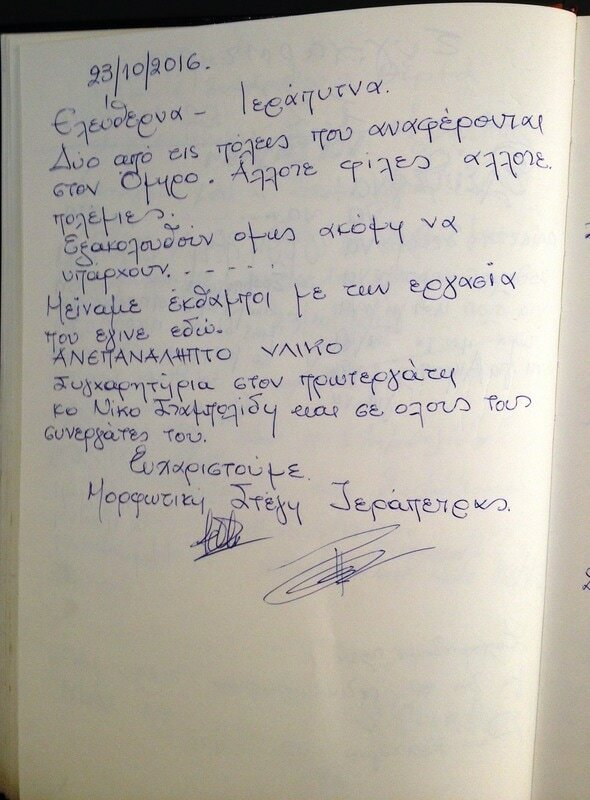 23/10/2016.
Ελεύθερνα - Ιεράπυτνα.
Δύο από τις πόλεις που αναφέρονται
στον Όμηρο. Άλλοτε φίλες άλλοτε
πολέμιες.
Εξακολουθούν ομως ακόμη να
υπάρχουν. - - - - -
Μείναμε έκθαμποι με την εργασία
που έγινε εδώ.
ΑΝΕΠΑΝΑΛΗΠΤΟ ΥΛΙΚΟ
Συγχαρητήρια στον πρωτεργάτη
κο Νίκο Σταμπολίδη και σε ολους τους
συνεργάτες του.
Ευχαριστούμε.
Μορφωτική Στέγη Ιεράπετρας.